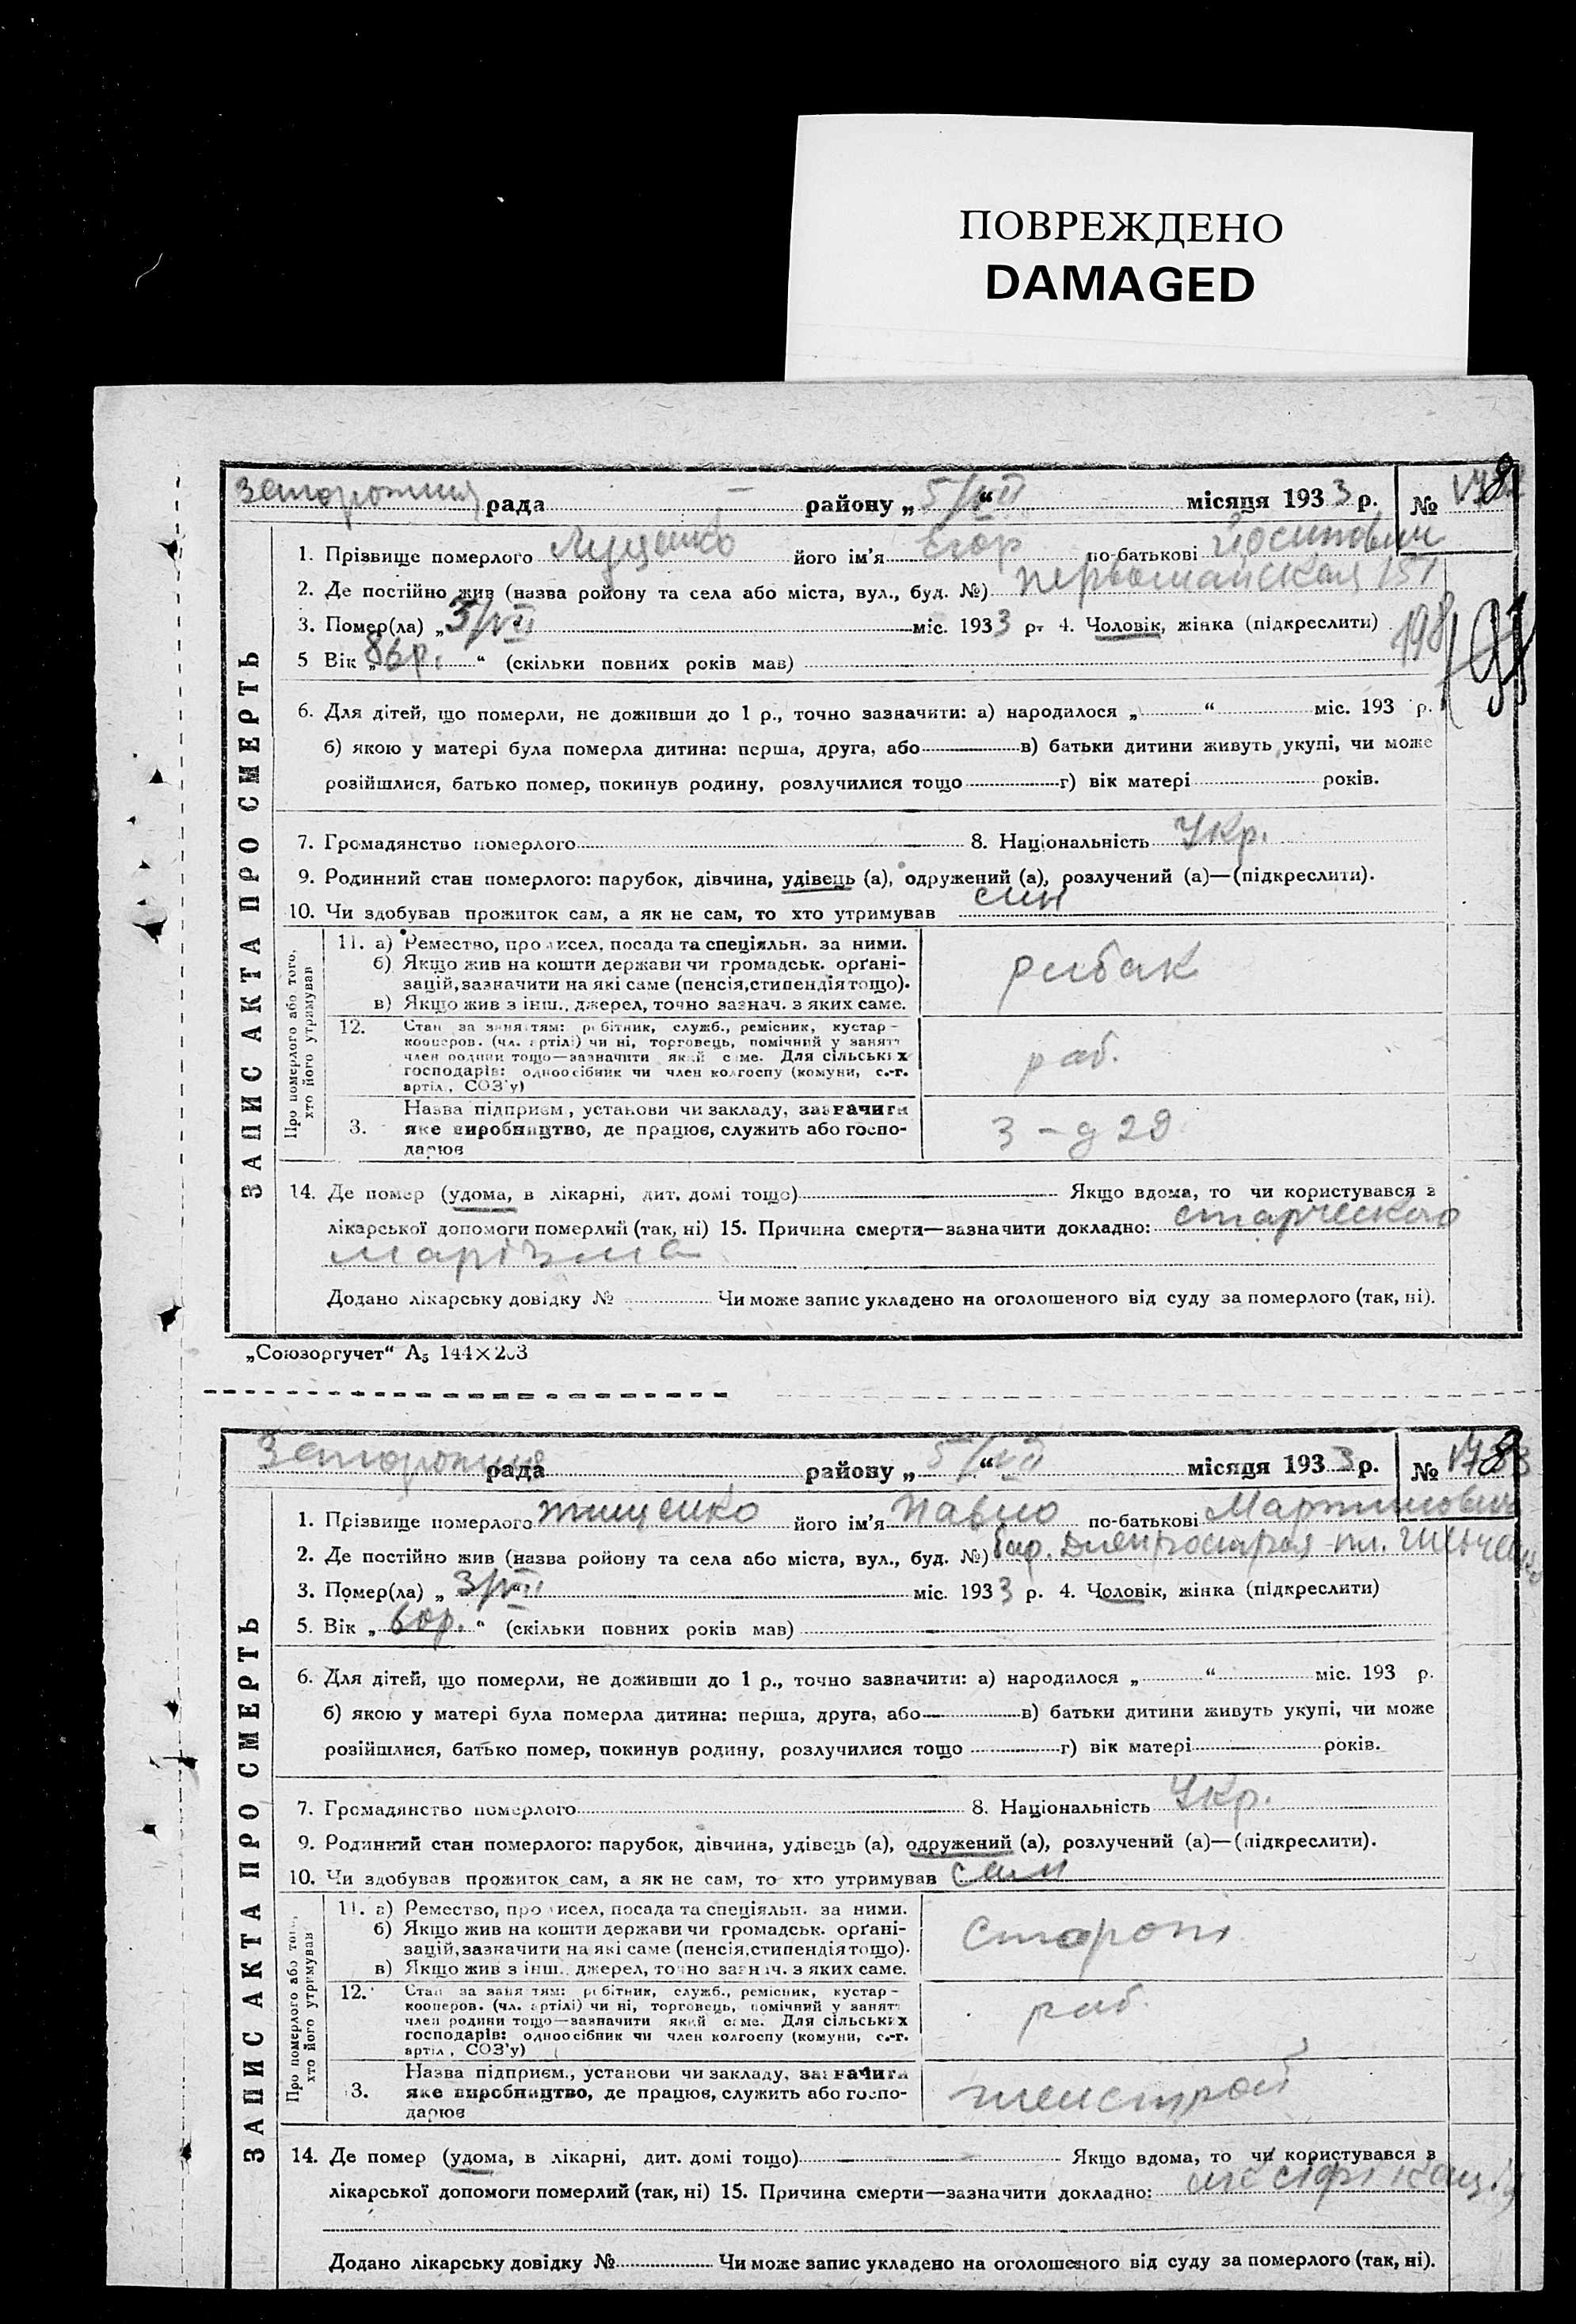 ПОВРЕЖДЕНО
DAMAGED
Запорожская рада района „ 5/VII “ місяця 193 3 р. №
1. Прізвище померлого Луценко його ім’я Єгор по-батькові Йосипович
2. Де постійно жив (назва ройону та села або міста, вул., буд. №) Первомайская 151
3. Помер(ла) „ 3/VII міс. 193 3 р. 4. Чоловік, жінка (підкреслити)
5 Вік „ 86р. “ (скільки повних років мав)
198
6. Для дітей, що померли, не доживши до 1 р., точно зазначити: а) народилося „ “ міс. 193 р.
б) якою у матері була померла дитина: перша, друга, або в) батьки дитини живуть укупі, чи може
розійшлися, батько помер, покинув родину, розлучилися тощо г) вік матері років.
7. Громадянство померлого 8. Національність Укр.
9. Родинний стан померлого: парубок, дівчина, удівець (а), одружений (а), розлучений (а)—(підкреслити).
10. Чи здобував прожиток сам, а як не сам, то хто утримував син
ЗАПИС АКТА ПРО СМЕРТЬ
Про померлого або того,
хто його утримував
11. а) Ремество, промисел, посада та спеціяльн. за ними.
б) Якщо жив на кошти держави чи громадськ. орґані-
зацій, зазначити на які саме (пенсія, стипендія тощо).
в) Якщо жив з інш. джерел, точно зазнач. з яких саме.
рибак
12. Стан за заняттям: робітник, служб., ремісник, кустар-
кооперов. (чл. артілі) чи ні, торговець, помічний у занятт
член родини тощо—зазначити який саме. Для сільських
господарів: одноосібник чи член колгоспу (комуни, с.-г.
артіл., СОЗ'у)
раб.
3. Назва підприєм., установи чи закладу, зазначити
яке виробництво, де працює, служить або госпо-
дарює
З-д 29
14. Де помер (удома, в лікарні, дит. домі тощо) Якщо вдома, то чи користувався з
лікарської допомоги померлий (так, ні) 15. Причина смерти—зазначити докладно: старческого
марізма
Додано лікарську довідку № Чи може запис укладено на оголошеного від суду за померлого (так, ні).
„Союзоргучет“ А₅ 144×203
Запорожская рада району „ 5/VII “ місяця 193 3 р. №
1. Прізвище померлого Тищенко його ім’я Павло по-батькові Мартинович
2. Де постійно жив (назва ройону та села або міста, вул., буд. №) бар. Днепростроя пл. Шевченко
3. Помер(ла) „ 3/VII міс. 193 3 р. 4. Чоловік, жінка (підкреслити)
5. Вік „ 60р. “ (скільки повних років мав)
6. Для дітей, що померли, не доживши до 1 р., точно зазначити: а) народилося „ “ міс. 193 р.
б) якою у матері була померла дитина: перша, друга, або в) батьки дитини живуть укупі, чи може
розійшлися, батько помер, покинув родину, розлучилися тощо г) вік матері років.
7. Громадянство померлого 8. Національність Укр.
9. Родинний стан померлого: парубок, дівчина, удівець (а), одружений (а), розлучений (а)—(підкреслити).
10. Чи здобував прожиток сам, а як не сам, то хто утримував сам
ЗАПИС АКТА ПРО СМЕРТЬ
Про померлого або того,
хто його утримував
11. а) Ремество, промисел, посада та спеціяльн. за ними.
б) Якщо жив на кошти держави чи громадськ. орґані-
зацій, зазначити на які саме (пенсія, стипендія тощо).
в) Якщо жив з інш. джерел, точно зазнач. з яких саме.
Сторож
12. Стан за заняттям: робітник, служб., ремісник, кустар-
кооперов. (чл. артілі) чи ні, торговець, помічний у занятт
член родини тощо—зазначити який саме. Для сільських
господарів: одноосібник чи член колгоспу (комуни, с.-г.
артіл., СОЗ'у)
раб.
3. Назва підприєм., установи чи закладу, зазначити
яке виробництво, де працює, служить або госпо-
дарює
14. Де помер (удома, в лікарні, дит. домі тощо) Якщо вдома, то чи користувався з
лікарської допомоги померлий (так, ні) 15. Причина смерти—зазначити докладно:
Додано лікарську довідку № Чи може запис укладено на оголошеного від суду за померлого (так, ні).